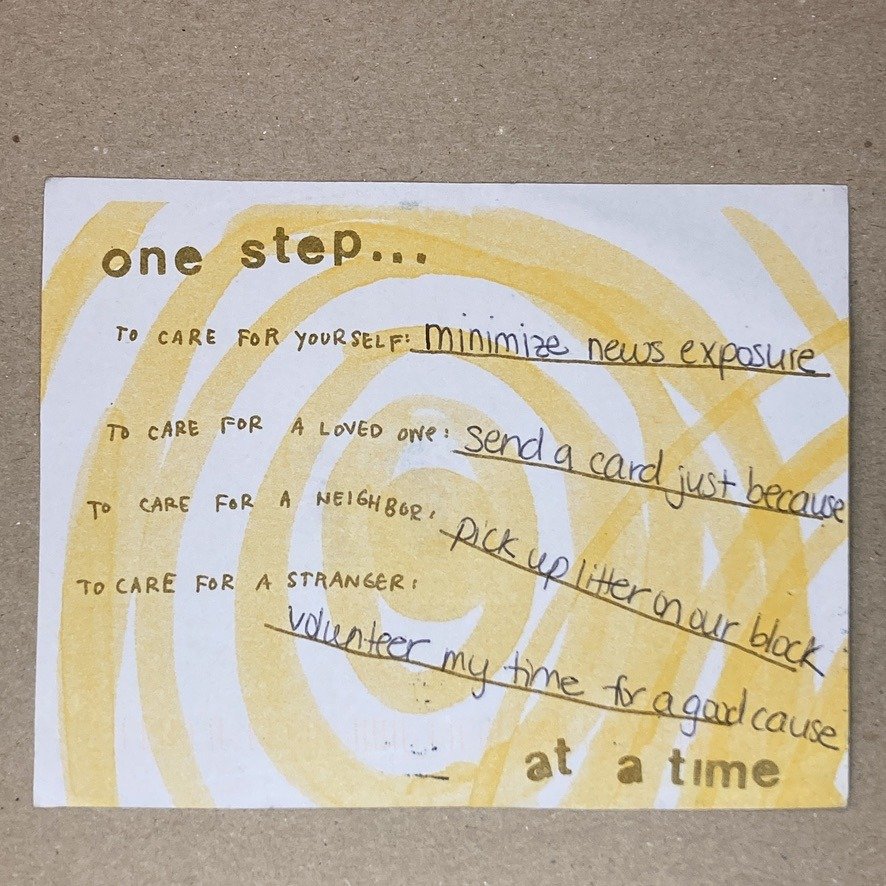 one step...
TO CARE FOR YOURSELF: minimize news exposure
TO CARE FOR A LOVED ONE: send a card just because
TO CARE FOR A NEIGHBOR: pick up litter on our block
TO CARE FOR A STRANGER:
volunteer my time for a good cause
at a time